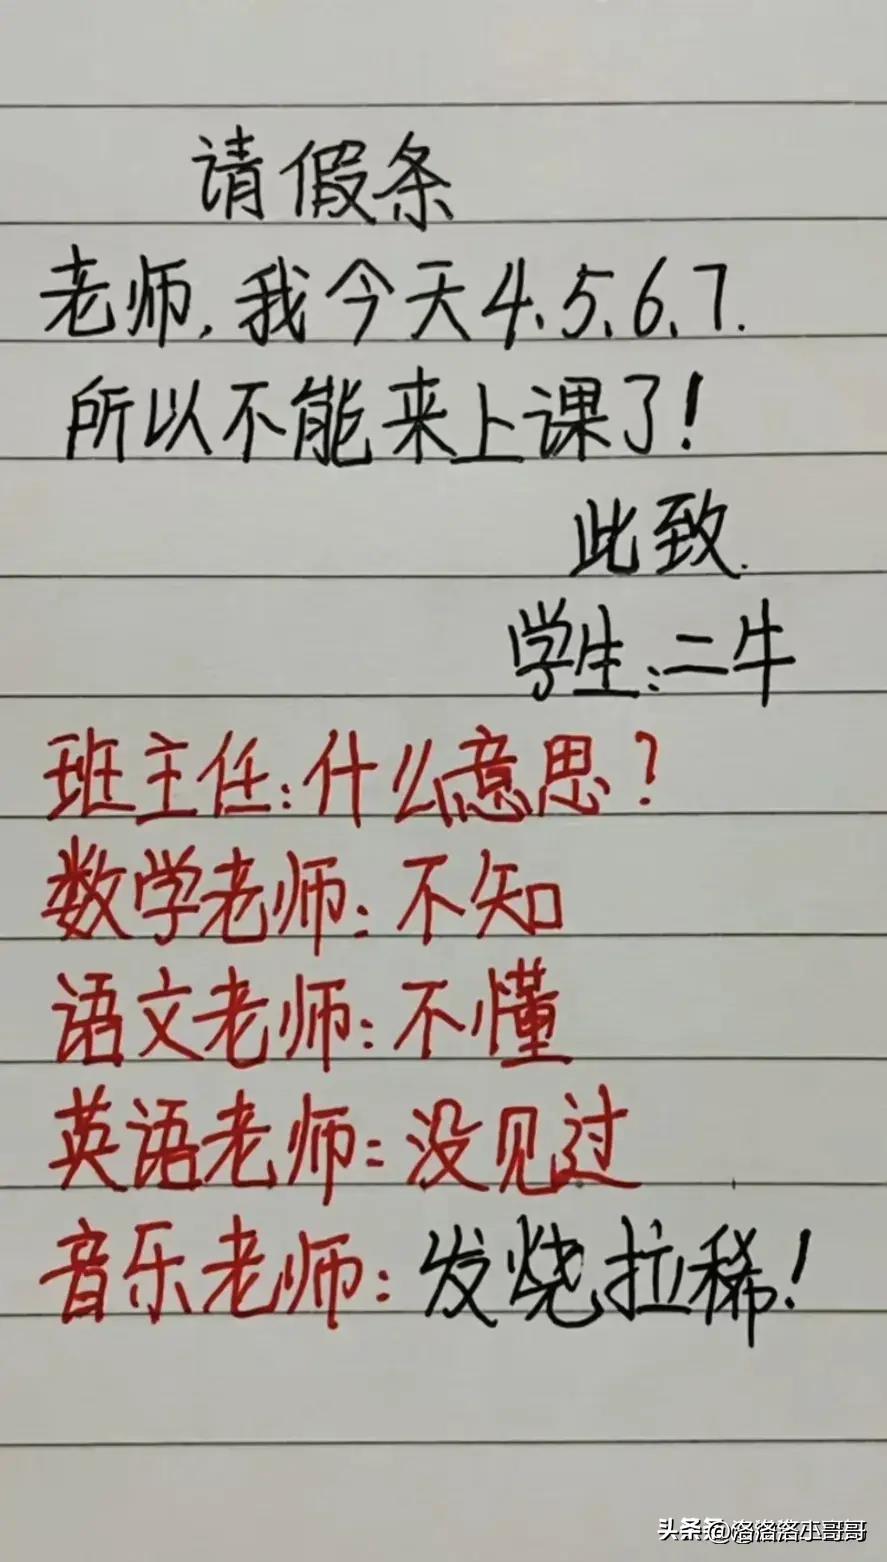 请假条
老师,我今天4、5、6、7.
所以不能来上课了!
此致.
学生:二牛
班主任:什么意思?
数学老师:不知
语文老师:不懂
英语老师:没见过
音乐老师:发烧拉稀!
头条 @洛洛洛小哥哥